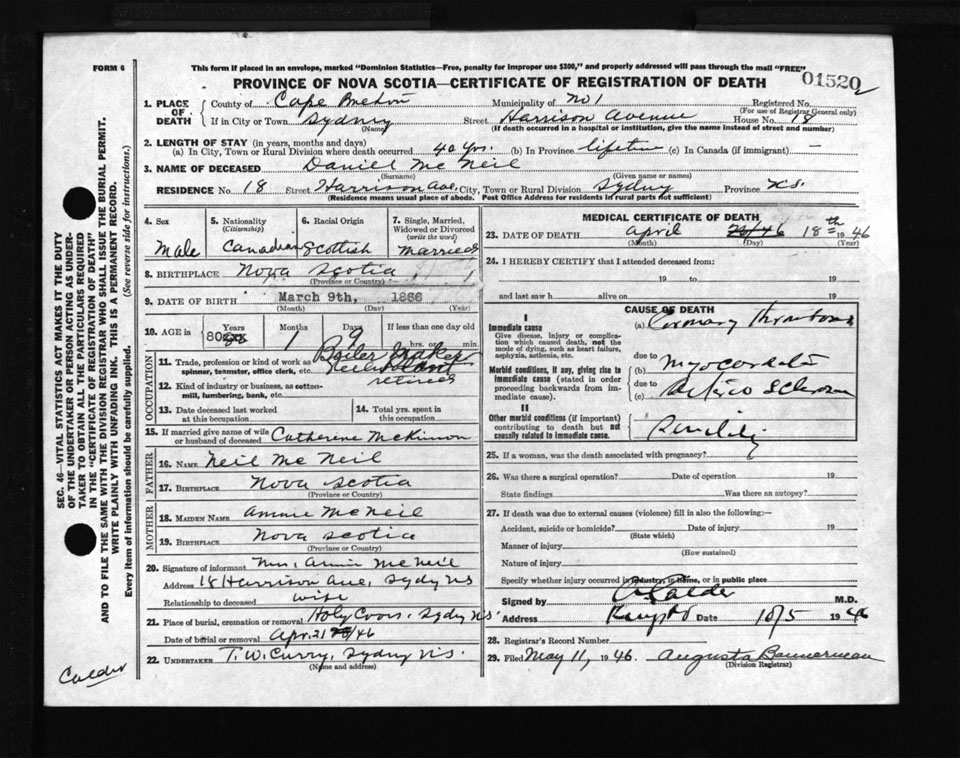 FORM 6
This form if placed in an envelope, marked "Dominion Statistics—Free, penalty for improper use $300," and properly addressed will pass through the mail "FREE"
PROVINCE OF NOVA SCOTIA—CERTIFICATE OF REGISTRATION OF DEATH
01520
2
1. PLACE OF DEATH
County of Cape Breton Municipality of No 1 Registered No.
(For use of Registrar General only)
If in City or Town Sydney Street Harrison Avenue House No. 18
(Name) (If death occurred in a hospital or institution, give the name instead of street and number)
2. LENGTH OF STAY (in years, months and days)
(a) In City, Town or Rural Division where death occurred 40 yrs. (b) In Province lifetime (c) In Canada (if immigrant) —
3. NAME OF DECEASED Daniel Mc Neil
(Surname) (Given name or names)
RESIDENCE No. 18 Street Harrison Ave, City, Town or Rural Division Sydney Province N.S.
(Residence means usual place of abode. Post Office Address for residents in rural parts not sufficient)
4. Sex
Male
5. Nationality
(Citizenship)
Canadian
6. Racial Origin
Scottish
7. Single, Married, Widowed or Divorced
(write the word)
Married
8. BIRTHPLACE Nova Scotia
(Province or Country)
9. DATE OF BIRTH March 9th, 1866
(Month) (Day) (Year)
10. AGE in Years Months Days If less than one day old
80 1 9 hrs. or min.
OCCUPATION
11. Trade, profession or kind of work as spinner, teamster, office clerk, etc. Boiler Maker
retired
12. Kind of industry or business, as cotton-mill, lumbering, bank, etc.
13. Date deceased last worked at this occupation
14. Total yrs. spent in this occupation
15. If married give name of wife or husband of deceased Catherine McKinnon
FATHER
16. NAME Neil Mc Neil
17. BIRTHPLACE Nova Scotia
(Province or Country)
MOTHER
18. MAIDEN NAME Annie Mc Neil
19. BIRTHPLACE Nova Scotia
(Province or Country)
20. Signature of informant Mrs. Annie Mc Neil
Address 18 Harrison Ave, Sydney NS
Relationship to deceased wife
21. Place of burial, cremation or removal Holy Cross, Sydney N.S.
Date of burial or removal Apr. 21 /46
22. UNDERTAKER T. W. Curry, Sydney N.S.
(Name and address)
MEDICAL CERTIFICATE OF DEATH
23. DATE OF DEATH April 18th 1946
(Month) (Day) (Year)
24. I HEREBY CERTIFY that I attended deceased from:
19 to 19
and last saw h alive on 19
CAUSE OF DEATH
I
Immediate cause
Give disease, injury or complication which caused death, not the mode of dying, such as heart failure, asphyxia, asthenia, etc.
(a) Coronary Thrombosis
due to
Morbid conditions, if any, giving rise to immediate cause (stated in order proceeding backwards from immediate cause).
(b) Myocarditis
due to
(c) Arterio Sclerosis
II
Other morbid conditions (if important) contributing to death but not causally related to immediate cause.
Senility
25. If a woman, was the death associated with pregnancy?
26. Was there a surgical operation? Date of operation 19
State findings Was there an autopsy?
27. If death was due to external causes (violence) fill in also the following:—
Accident, suicide or homicide? Date of injury 19
(State which)
Manner of injury
(How sustained)
Nature of injury
Specify whether injury occurred in industry, in home, or in public place
Signed by A. Calder M.D.
Address Date 10/5 1946
28. Registrar's Record Number
29. Filed May 11, 1946. Augusta Bannerman
(Division Registrar)
SEC. 46—VITAL STATISTICS ACT MAKES IT THE DUTY
OF THE UNDERTAKER OR PERSON ACTING AS UNDER-
TAKER TO OBTAIN ALL THE PARTICULARS REQUIRED
IN THE "CERTIFICATE OF REGISTRATION OF DEATH"
AND TO FILE THE SAME WITH THE DIVISION REGISTRAR WHO SHALL ISSUE THE BURIAL PERMIT.
WRITE PLAINLY WITH UNFADING INK. THIS IS A PERMANENT RECORD.
Every item of information should be carefully supplied. (See reverse side for instructions.)
Calder